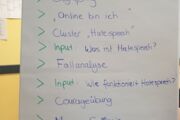 > „Online bin ich"
> Cluster „Hatespeech"
> Input: Was ist Hatespeech?
> Fallanalyse
> Input: Wie funktioniert Hatespeech?
> Courageübung